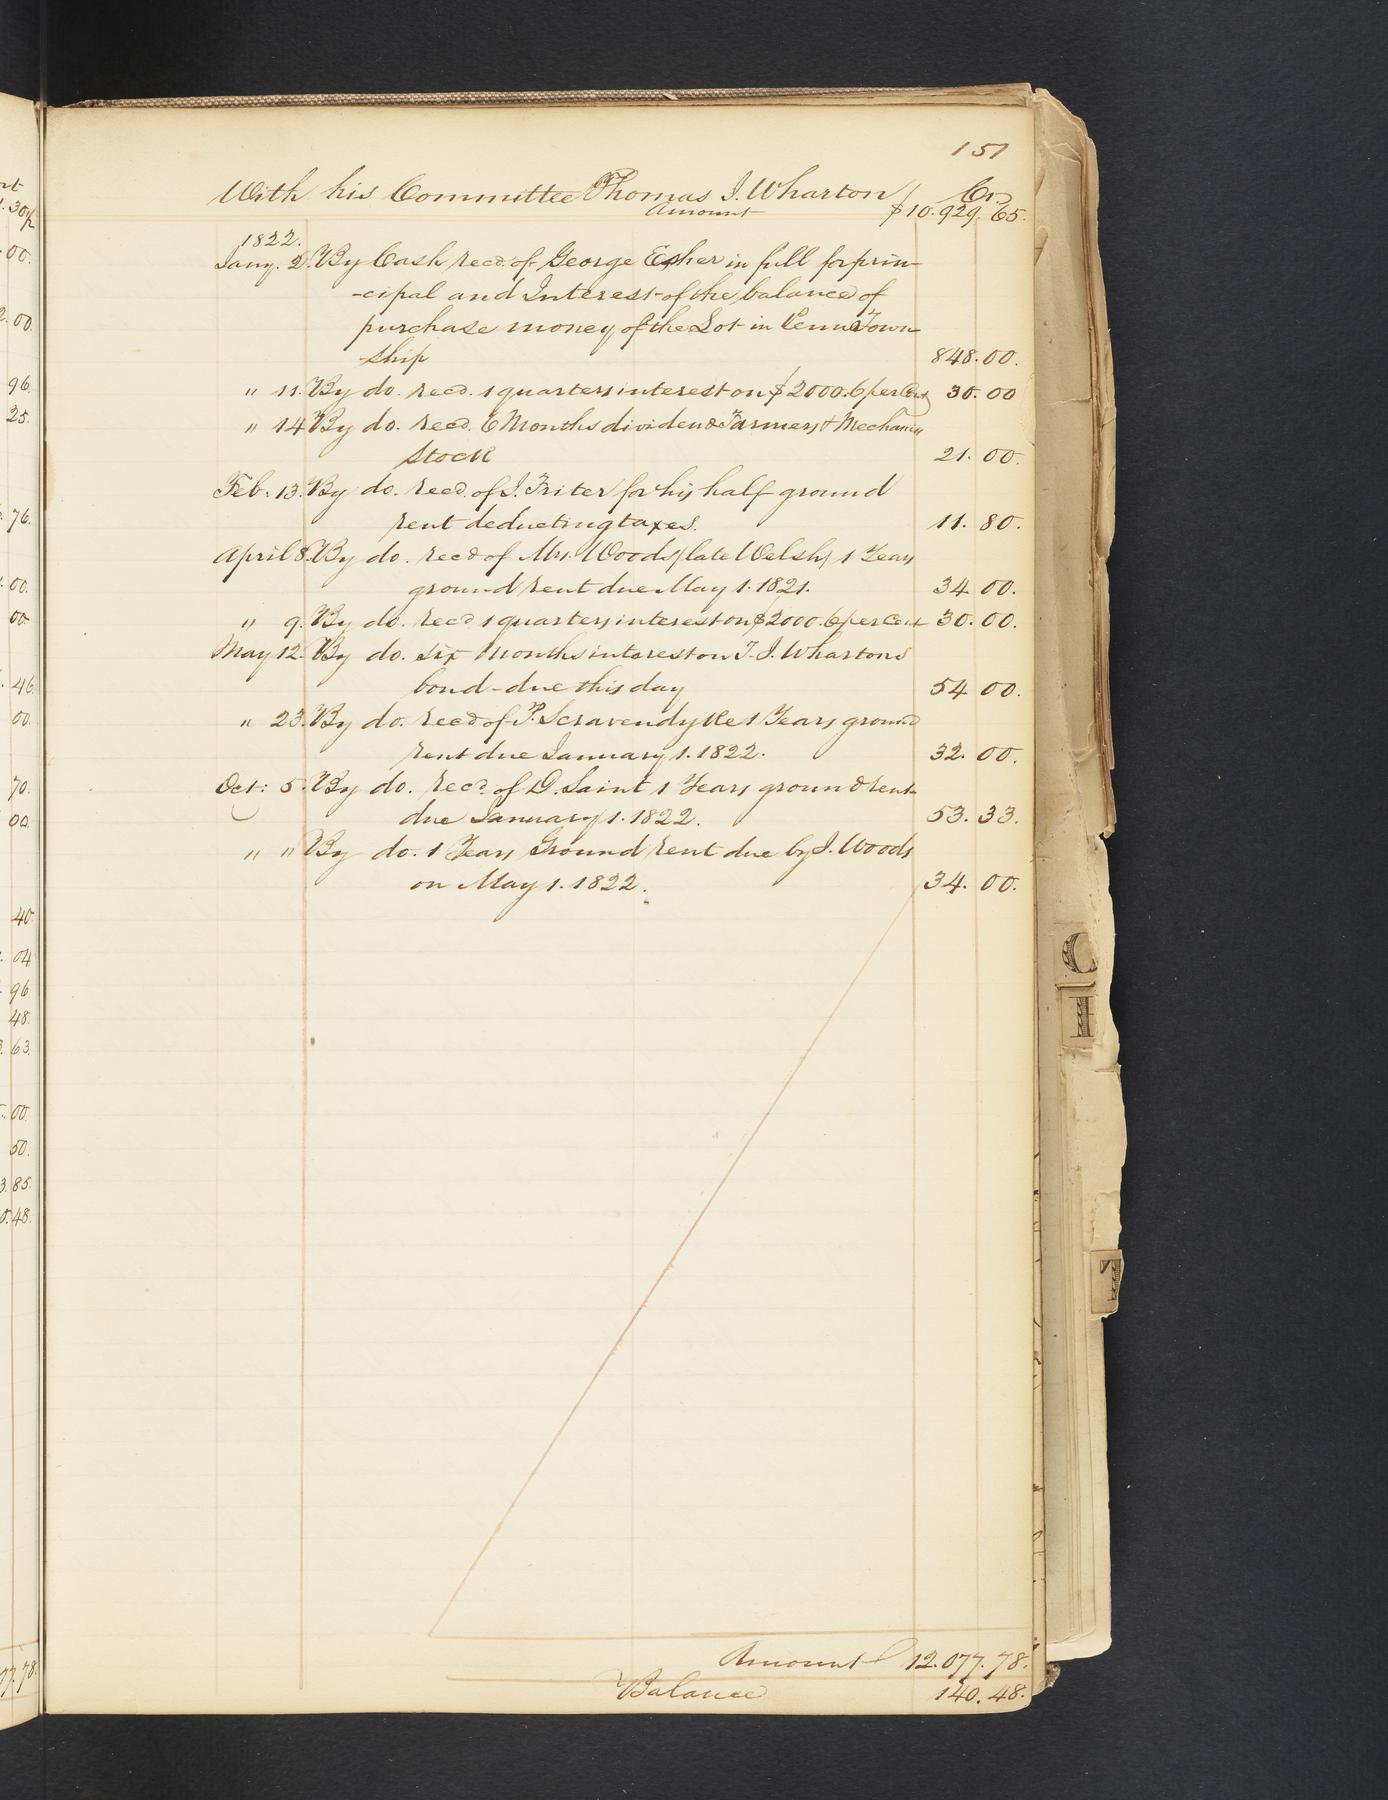 151
With his Committee Thomas I. Wharton Cr.
Amount $10.929.65.
1822.
Jany. 2. By Cash recd. of George Esher in full for prin-
-cipal and Interest of the balance of
purchase money of the Lot in Penn Town-
-ship 848.00.
" 11. By do. recd. 1 quarters interest on $2000. 6 per Cent 30.00
" 14 By do. recd. 6 Months dividend Farmers & Mechanics
Stock 21.00.
Feb: 13. By do. recd. of J. Friter for his half ground
rent deducting taxes. 11.80.
April 8. By do. recd of Mrs. Woods (late Welsh) 1 Years
ground rent due May 1. 1821. 34 00.
" 9. By do. recd. 1 quarters interest on $2000. 6 per Cent 30.00.
May 12. By do. six Months interest on T. I. Whartons
bond due this day 54 00.
" 23. By do. recd of P. Scravendyke 1 Years ground
rent due January 1. 1822. 32.00.
Oct: 5. By do. recd. of D. Saint 1 Years ground rent
due January 1. 1822. 53.33.
" " By do. 1 Years Ground rent due by J. Woods
on May 1. 1822. 34.00.
Amount 12.077.78.
Balance 140.48.
00.
00.
96.
25.
76.
00.
00
46.
00.
70.
00.
40.
04
96.
48.
63.
00.
50.
85.
48.
78.
C
I
T